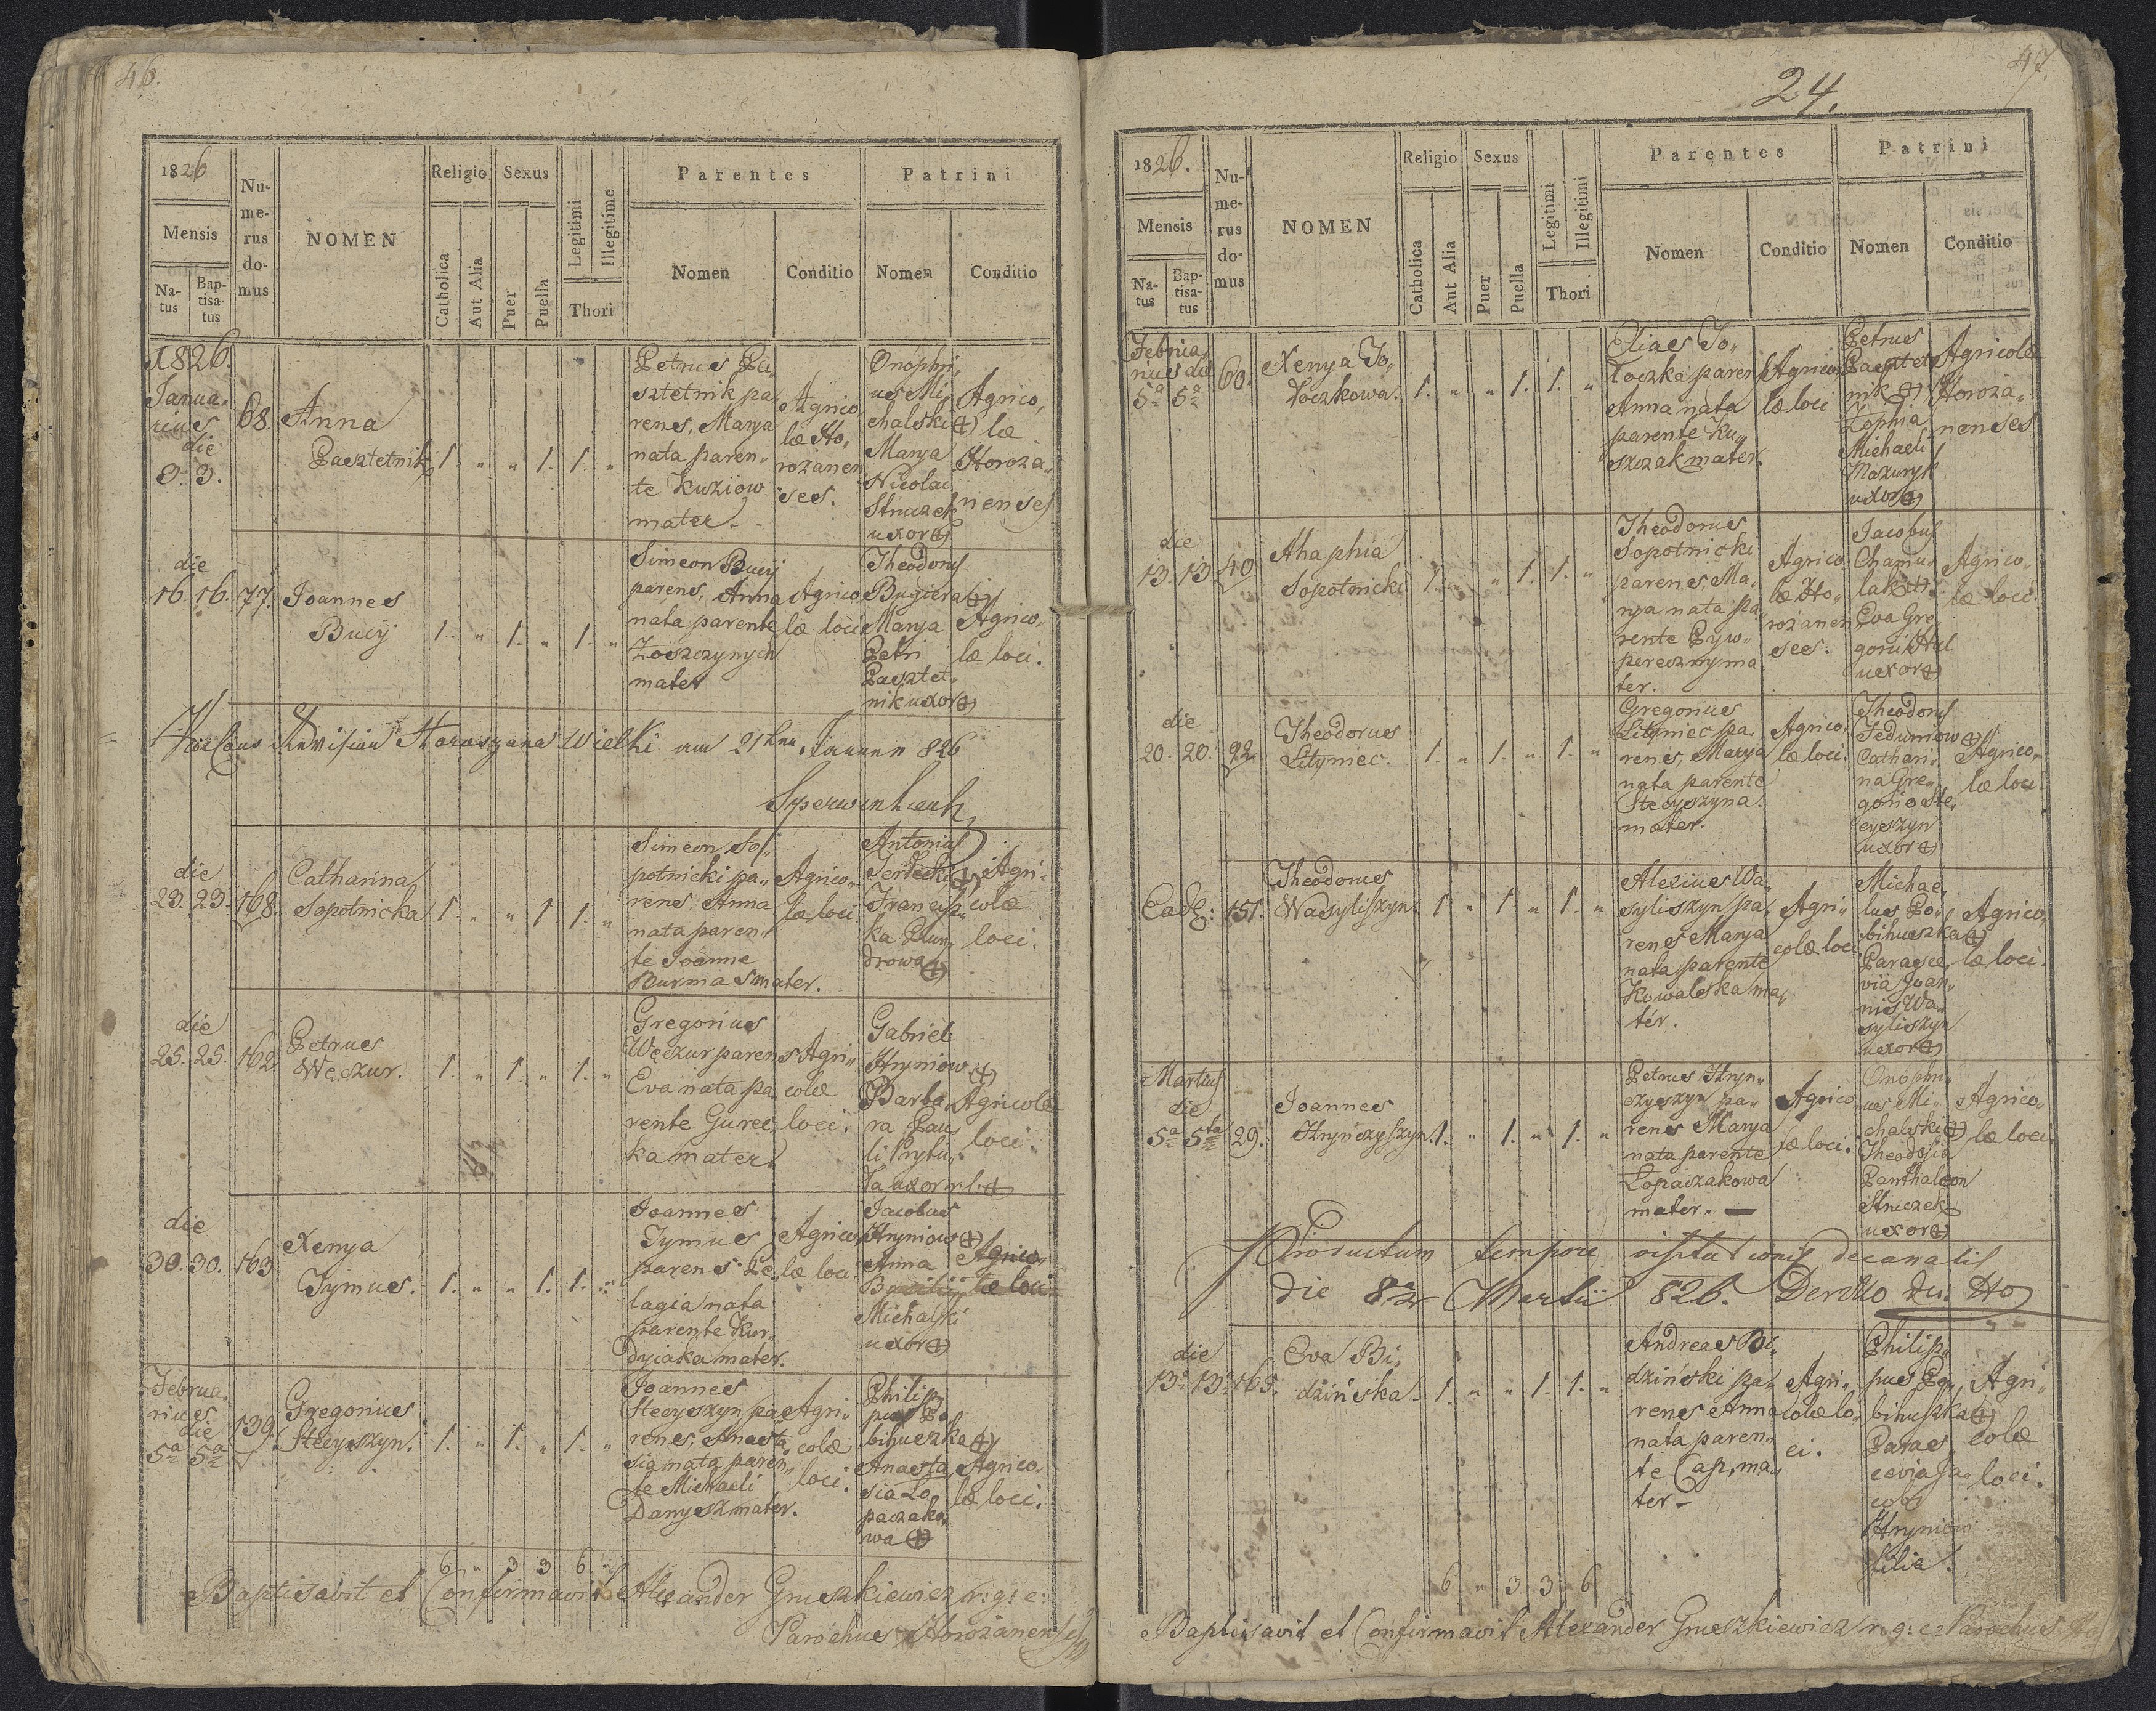 46.
1826
Mensis
Na-
tus
Bap-
tisa-
tus
Nu-
me-
rus
do-
mus
NOMEN
Religio
Catholica
Aut Alia
Sexus
Puer
Puella
Legitimi
Illegitime
Thori
Parentes
Nomen
Conditio
Patrini
Nomen
Conditio
1826.
Janua-
rius
die
3. 3.
68
Anna
Pasztetnik
1. " " 1. 1. "
Petrus
sztetnik pa
rens, Marya
nata paren-
te Kuziow
mater.
Agrico,
læ Ho,
rozanen
ses.
Onophri,
us Mi,
chalski
Marya
Nicolai
Struczek
uxor
Agrico,
læ
Horoza-
nenses
die
16. 16.
77.
Joannes
Bucy
1. " 1. " 1. "
Simeon Bucy
parens, Anna
nata parente
Zoszczynych
mater
Agrico
læ loci
Theodorus
Bugiera
Marya
Petri
Pasztet-
nik uxor
Agrico-
læ loci.
Revision Horozana Wielki am 21ten 826
die
23. 23.
168.
Catharina
Sopotnicka
1. " " 1. 1. "
Simeon So-
potnicki pa-
rens Anna
nata paren-
te Joanne
Burma mater.
Agrico-
læ loci.
Antonius
Terlecki
Francis-
ka Pun-
drowa
Agri-
colæ
loci.
die
25. 25.
162
Petrus
Węczur.
1. " 1. " 1. "
Gregorius
Węczur parens
Eva nata pa
rente Gurec,
ka mater.
Agri-
colæ
loci.
Gabriel
Hryniow
Barba,
ra Pau,
li Prytu,
la uxor
Agricolæ
loci.
die
30. 30.
163
Xenya
Tymus.
1. " " 1. 1. "
Joannes
Tymus
parens Pe,
lagia nata
parente Kur-
dyiaka mater.
Agrico
læ loci
Jacobus
Hryniow
Anna
Michalski
uxor
Agrico-
læ loci
Februa-
rius
die
5a 5a
139.
Gregorius
Stecyszyn.
1. " 1. " 1. "
Joannes
Stecyszyn pa
rens, Anasta,
sia nata paren-
te Michaeli
Danysz mater.
Agri-
colæ
loci.
Philip,
pus Po
bihuszka
Anasta,
sia Ło,
paczako,
wa
Agrico-
læ loci.
6 " 3 3 6 "
Baptisavit et Confirmavit Alexander Gruszkiewicz r: g: c:
Parochus Horozanensis
47.
24.
1826.
Mensis
Na-
tus
Bap-
tisa-
tus
Nu-
me-
rus
do-
mus
NOMEN
Religio
Catholica
Aut Alia
Sexus
Puer
Puella
Legitimi
Illegitimi
Thori
Parentes
Nomen
Conditio
Patrini
Nomen
Conditio
Februa,
rius die
5a 5a
60.
Xenya To,
łoczkowa.
1. " " 1. 1. "
Elias To-
łoczka paren
Anna nata
parente Ku,
szczak mater.
Agrico,
læ loci
Petrus
Pasztet
nik
Zophia
Michaeli
Mazuryk
uxor
Agricolæ
Horoza-
nenses
die
13. 13
40
Ahaphia
Sopotnicki
1. " " 1. 1. "
Theodorus
Sopotnicki
parens, Ma-
rya nata pa-
rente Pyw-
pereczny ma
ter.
Agrico
læ Ho-
rozanen
ses.
Jacobus
Chamu-
lak
Eva Gre,
gorii
uxor
Agrico-
læ loci.
die
20. 20.
92.
Theodorus
Lityniec.
1. " 1. " 1. "
Gregorius
Lityniec pa
rens, Marya
nata parente
Stecyszyna.
mater.
Agrico,
læ loci.
Theodorus
Feduniow
Cathari-
na Gre-
gorio Ste,
cyszyn
uxor
Agrico-
læ loci.
Eade:
151.
Theodorus
Wasyliszyn.
1 " 1 " 1. "
Alexius Wa,
syliszyn pa,
rens Marya
nata parente
Kowalska ma,
ter.
Agri-
colæ loci.
Michae,
lus, Po-
bihuszka
Parasce,
via Joan-
nis Wa-
syliszyn
uxor
Agrico,
læ loci.
Martius
die
5a 5ta
29.
Joannes
Hrynczyszyn.
1. " 1. " 1. "
Petrus Hryn-
czyszyn pa-
rens Marya
nata parente
Łopaczakowa
mater.
Agrico-
læ loci.
Onophri-
us Mi-
chalski
Theodosia
Panthaleon
Struczek
uxor
Agrico-
læ loci.
Productum tempore visitationis decanalis
die 8va Martii 826.
die
13a 13a
165.
Eva Bi,
dzińska.
1. " " 1. 1. "
Andreas Bi,
dziński pa,
rens Anna
nata paren-
te Cap, ma-
ter.
Agri-
colæ lo-
ci.
Philip-
pus Po,
bihuszka
Paras,
cevia Ja-
cobi
Hryniow
filia.
Agri-
colæ
loci.
6 " 3 3 6
Baptisavit et Confirmavit Alexander Gruszkiewicz r: g: c: Parochus